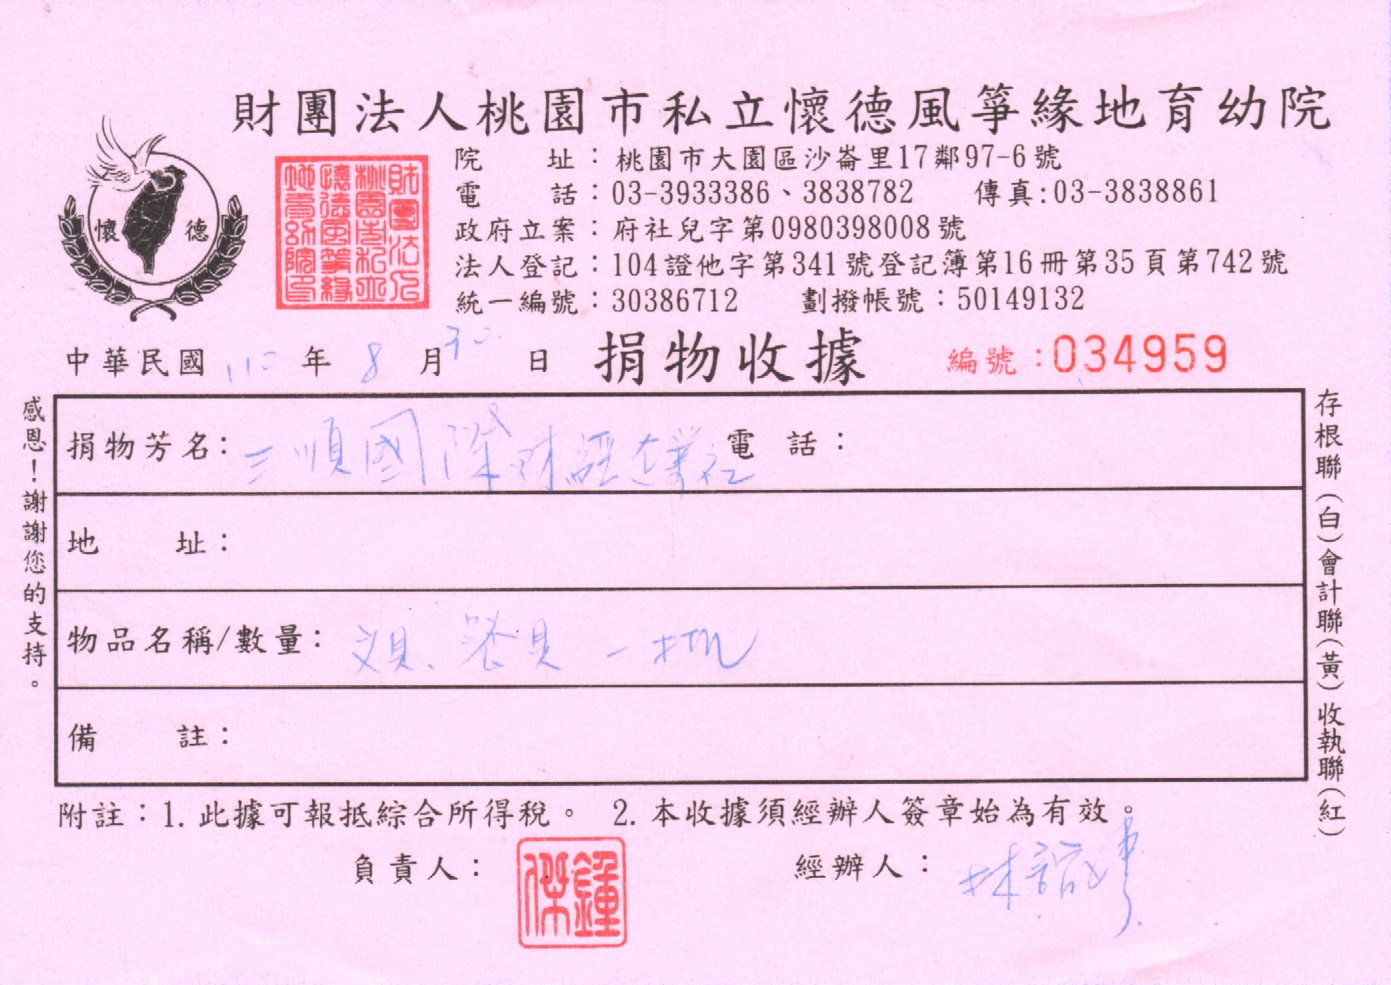 財團法人桃園市私立懷德風箏緣地育幼院
懷 德
財團法人桃園市私立懷德風箏緣地育幼院印
院　　址：桃園市大園區沙崙里17鄰97-6號
電　　話：03-3933386、3838782　傳真:03-3838861
政府立案：府社兒字第0980398008號
法人登記：104證他字第341號登記簿第16冊第35頁第742號
統一編號：30386712　劃撥帳號：50149132
中華民國 110 年 8 月 30 日 捐物收據 編號：034959
感恩！謝謝您的支持。
捐物芳名：三順國際財經 電　話：
地　　址：
物品名稱/數量： 、餐具一批
備　　註：
存根聯(白)會計聯(黃)收執聯(紅)
附註：1.此據可報抵綜合所得稅。　2.本收據須經辦人簽章始為有效。
負責人： 鍾傑 經辦人： 林